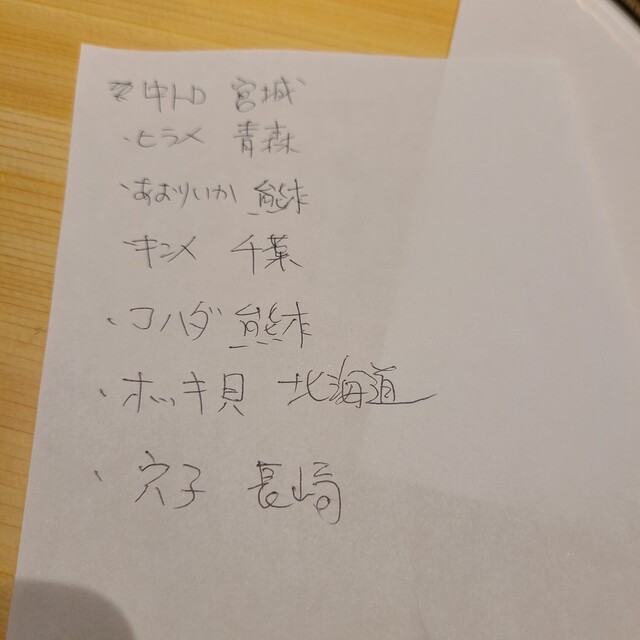 中トロ 宮城
・ヒラメ 青森
・あおりいか 熊本
・キンメ 千葉
・コハダ 熊本
・ホッキ貝 北海道
・穴子 長崎